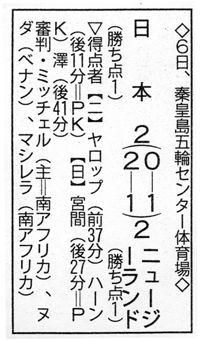 ◇6日、秦皇島五輪センター体育場◇
日本 2(0―1 2―1)2 ニュージーランド
(勝ち点1) (勝ち点1)
▽得点者【ニ】ヤロップ(前37分)ハーン
(後11分=PK)【日】宮間(後27分=P
K)澤(後41分)
審判・ミッチェル(主=南アフリカ)、ヌ
ダ(ベナン)、マシレラ(南アフリカ)